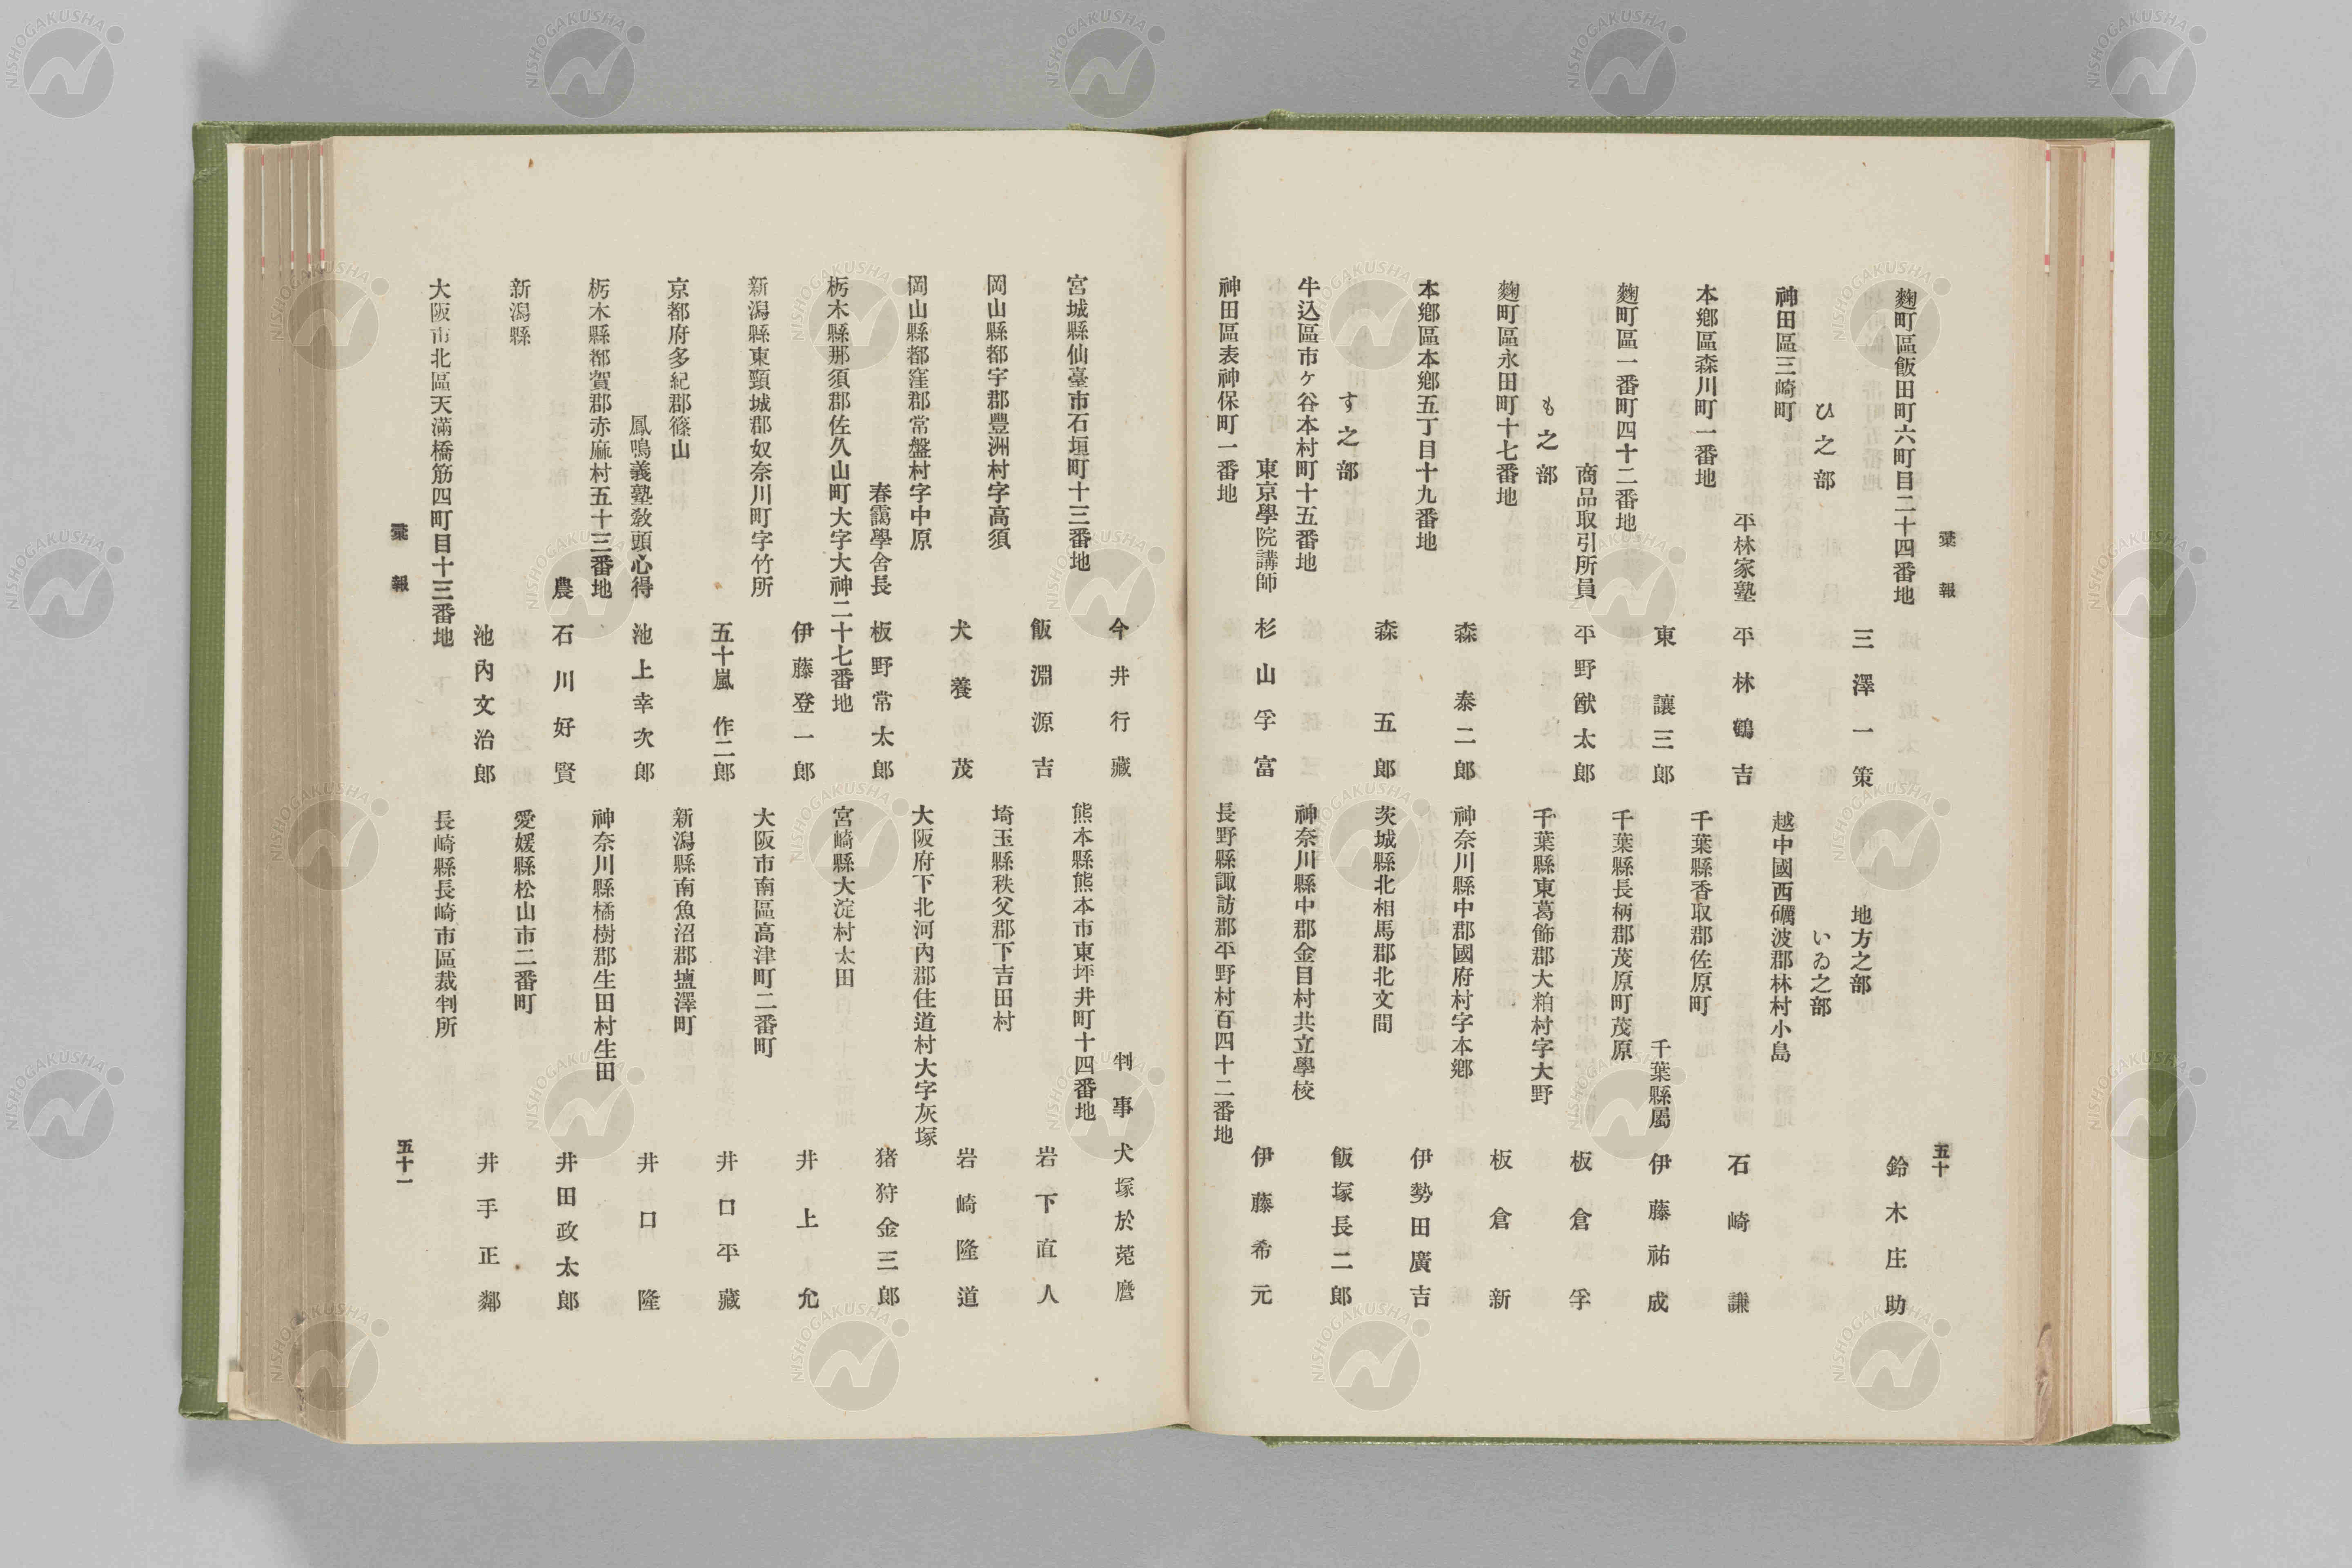 彙報
五十
麴町區飯田町六町目二十四番地
三澤一策
ひ之部
神田區三崎町
平林家塾 平林鶴吉
本鄉區森川町一番地
東讓三郎
麴町區一番町四十二番地
商品取引所員 平野猷太郎
も之部
麴町區永田町十七番地
森泰二郎
本鄉區本鄉五丁目十九番地
森五郎
す之部
牛込區市ヶ谷本村町十五番地
東京學院講師 杉山孚富
神田區表神保町一番地
鈴木庄助
地方之部
いゐ之部
越中國西礪波郡林村小島
石崎謙
千葉縣香取郡佐原町
千葉縣屬 伊藤祐成
千葉縣長柄郡茂原町茂原
板倉孚
千葉縣東葛飾郡大粕村字大野
板倉新
神奈川縣中郡國府村字本鄉
伊勢田廣吉
茨城縣北相馬郡北文間
飯塚長二郎
神奈川縣中郡金目村共立學校
伊藤希元
長野縣諏訪郡平野村百四十二番地
今井行藏
宮城縣仙臺市石垣町十三番地
飯淵源吉
岡山縣都宇郡豐洲村字高須
犬養茂
岡山縣都窪郡常盤村字中原
春靄學舍長 板野常太郎
栃木縣那須郡佐久山町大字大神二十七番地
伊藤登一郎
新潟縣東頸城郡奴奈川町字竹所
五十嵐作二郎
京都府多紀郡篠山
鳳鳴義塾敎頭心得 池上幸次郎
栃木縣都賀郡赤麻村五十三番地
農 石川好賢
新潟縣
池內文治郎
大阪市北區天滿橋筋四町目十三番地
判事 犬塚於菟麿
熊本縣熊本市東坪井町十四番地
岩下直人
埼玉縣秩父郡下吉田村
岩崎隆道
大阪府下北河內郡住道村大字灰塚
猪狩金三郎
宮崎縣大淀村太田
井上允
大阪市南區高津町二番町
井口平藏
新潟縣南魚沼郡塩澤町
井口隆
神奈川縣橘樹郡生田村生田
井田政太郎
愛媛縣松山市二番町
井手正鄰
長崎縣長崎市區裁判所
彙報
五十一
NISHOGAKUSHA